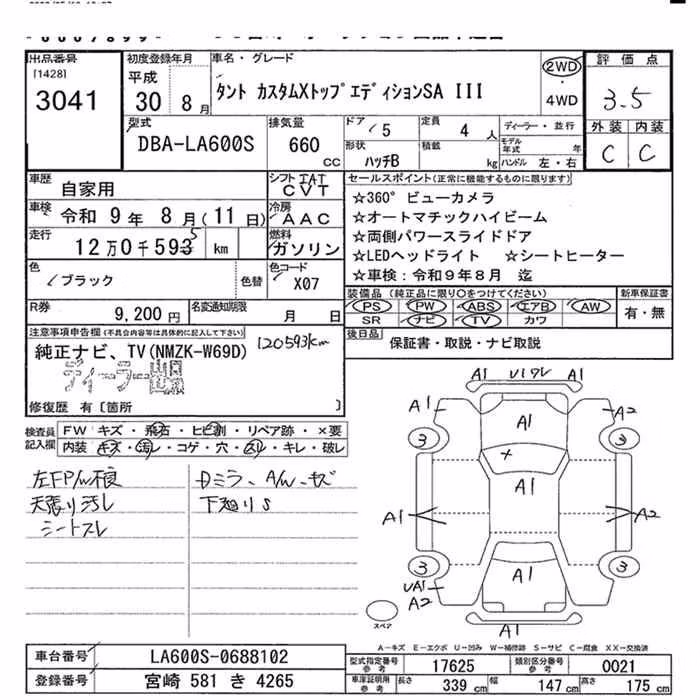 出品番号
[1428]
3041
初度登録年月
平成
30年8月
車名・グレード
タント カスタムXトップエディションSA III
2WD
4WD
評価点
3.5
外装 内装
C C
型式
DBA-LA600S
排気量
660
CC
ドア
5
定員
4人
形状
ハッチB
積載
kg
ディーラー・並行
モデル年式 年
ハンドル 左・右
車歴
自家用
シフト IAT
CVT
車検
令和 9年 8月(11日)
冷房
AAC
走行
12万0千593 km
5
燃料
ガソリン
色
ブラック
色替
色コード
X07
セールスポイント(正常に機能するものに限ります)
☆360° ビューカメラ
☆オートマチックハイビーム
☆両側パワースライドドア
☆LEDヘッドライト ☆シートヒーター
☆車検:令和9年8月 迄
R券
9,200円
名変通知期限
月 日
装備品(純正品に限り〇をつけてください)
PS PW ABS エアB AW
SR ナビ TV カワ
新車保証書
有・無
注意事項申告欄(不具合内容等は具体的に記入して下さい)
純正ナビ、TV(NMZK-W69D)
120593km
ディーラー出品
修復歴 有〔箇所 〕
後日品
保証書・取説・ナビ取説
検査員記入欄
FW キズ・飛石・ヒビ割・リペア跡・×要
内装・キズ・汚レ・コゲ・穴・スレ・キレ・破レ
左FP/w不良
天張り汚レ
シートスレ
Dミラー、A/w キズ
下廻りS
A1 U1タレ A1
A1 A1 A2
3 3
A1
A1 A2
3 3
UA1 A1
A2
A1
スペア
A-キズ E-エクボ U-凹み W-補修跡 S-サビ C-腐食 XX-交換済
車台番号
LA600S-0688102
登録番号
宮崎 581 き 4265
型式指定番号
参考
17625
類別区分番号
参考
0021
車庫証明用
参考
長さ 339 cm
幅 147 cm
高さ 175 cm